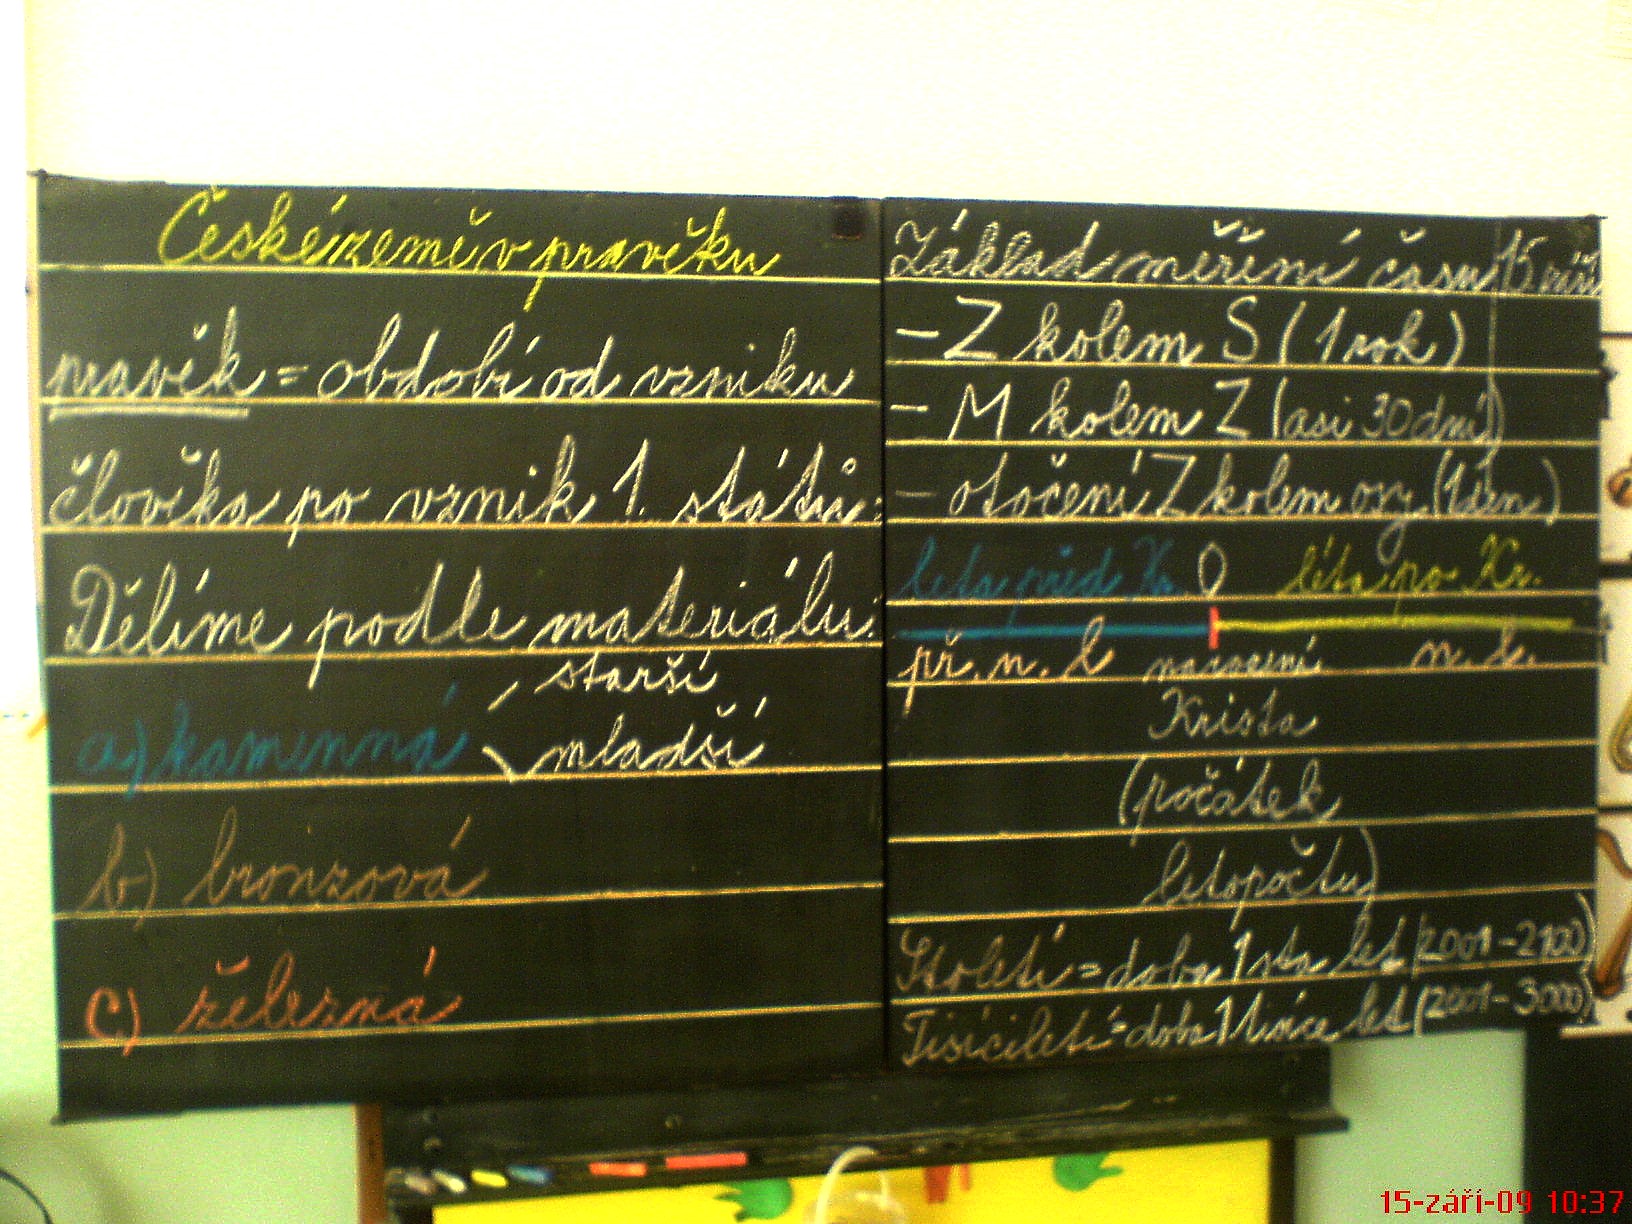 České země v pravěku
pravěk = období od vzniku
člověka po vznik 1. států.
Dělíme podle materiálu:
starší
a) kamenná
mladší
b) bronzová
c) železná
Základ měření času 15. září
- Z kolem S (1 rok)
- M kolem Z (asi 30 dní)
- otočení Z kolem osy (1 den)
léta před Kr. 0 léta po Kr.
př. n. l narození n. l.
Krista
(počátek
letopočtu)
Století = doba 1 sta let (2001-2100)
Tisíciletí = doba 1 tisíce let (2001-3000)
15-září-09 10:37